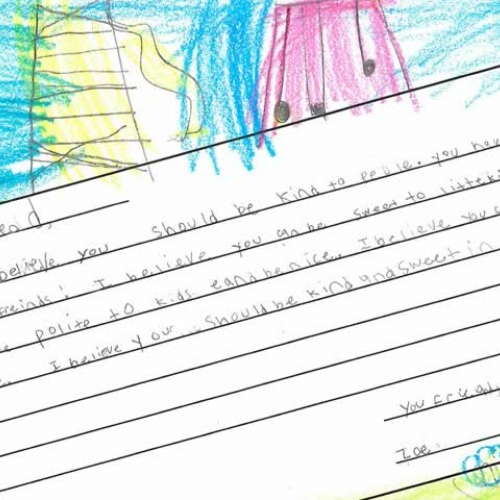 believe you should be kind to people. you hav
Freinds! I believe you can be sweet to
polite to kids and be nice. I believe you
I believe your should be kind and sweet in
you
Zoe.